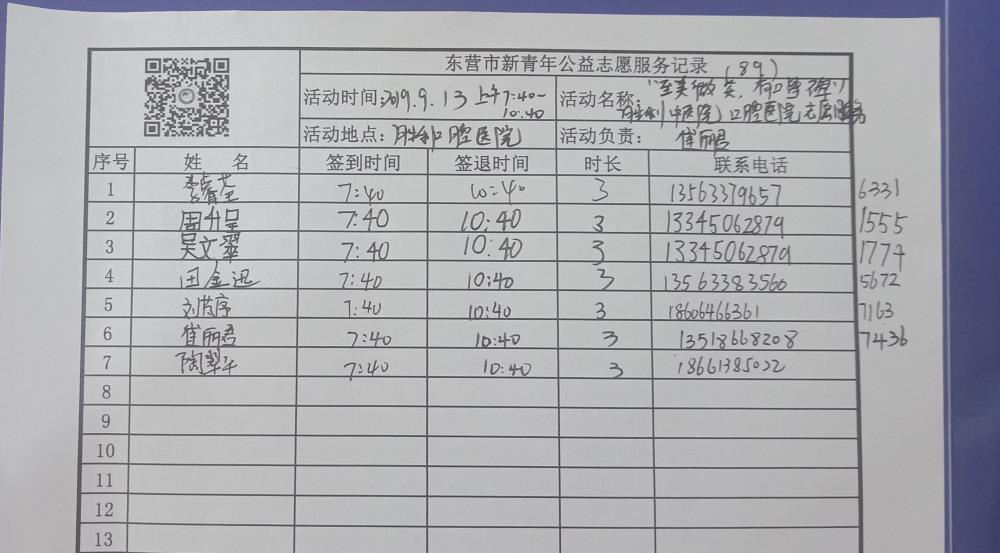 东营市新青年公益志愿服务记录（89）
活动时间:2019.9.13 上午7:40-10:40
活动名称:"至美微笑,有口皆碑"
胜利(中医院)口腔医院志愿服务
活动地点:胜利口腔医院
活动负责:崔丽君
序号 姓 名 签到时间 签退时间 时长 联系电话
1 7:40 10:40 3 13563379657 6331
2 周升呈 7:40 10:40 3 13345062879 1555
3 吴文翠 7:40 10:40 3 13345062879 1774
4 田金迅 7:40 10:40 3 13563383560 5672
5 刘芮序 7:40 10:40 3 18606466361 7163
6 崔丽君 7:40 10:40 3 13518668208 7436
7 陶翠平 7:40 10:40 3 18661385022
8
9
10
11
12
13